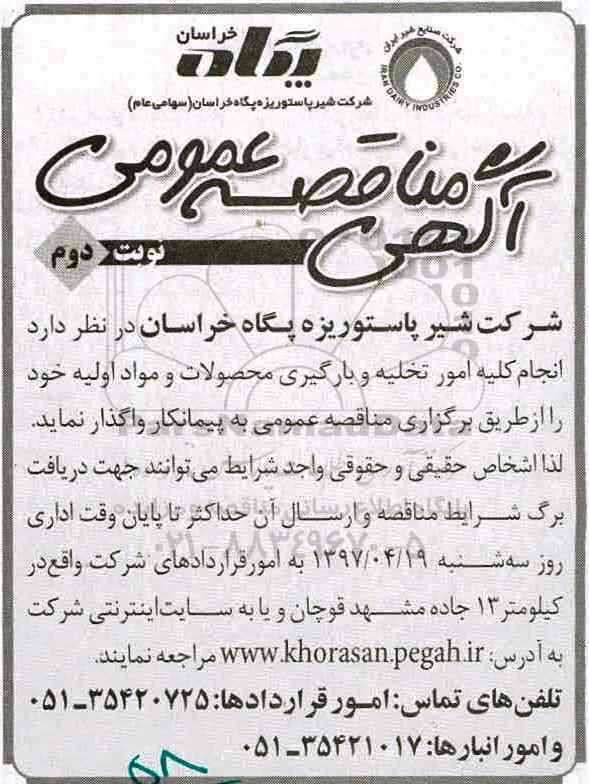 خراسان
پگاه
شرکت صنایع شیر ایران
IRAN DAIRY INDUSTRIES CO.
شرکت شیر پاستوریزه پگاه خراسان (سهامی عام)
آگهی مناقصه عمومی
نوبت دوم
شرکت شیر پاستوریزه پگاه خراسان در نظر دارد
انجام کلیه امور تخلیه و بارگیری محصولات و مواد اولیه خود
را از طریق برگزاری مناقصه عمومی به پیمانکار واگذار نماید.
لذا اشخاص حقیقی و حقوقی واجد شرایط می‌توانند جهت دریافت
برگ شرایط مناقصه و ارسال آن حداکثر تا پایان وقت اداری
روز سه‌شنبه ۱۳۹۷/۰۴/۱۹ به امور قراردادهای شرکت واقع در
کیلومتر ۱۳ جاده مشهد قوچان و یا به سایت اینترنتی شرکت
به آدرس: www.khorasan.pegah.ir مراجعه نمایند.
تلفن‌های تماس: امور قراردادها: ۳۵۴۲۰۷۲۵-۰۵۱
و امور انبارها: ۳۵۴۲۱۰۱۷-۰۵۱
ParsNamadData
پایگاه اطلاع رسانی مناقصه و مزایده
۰۲۱-۸۸۳۴۹۶۷۰-۵